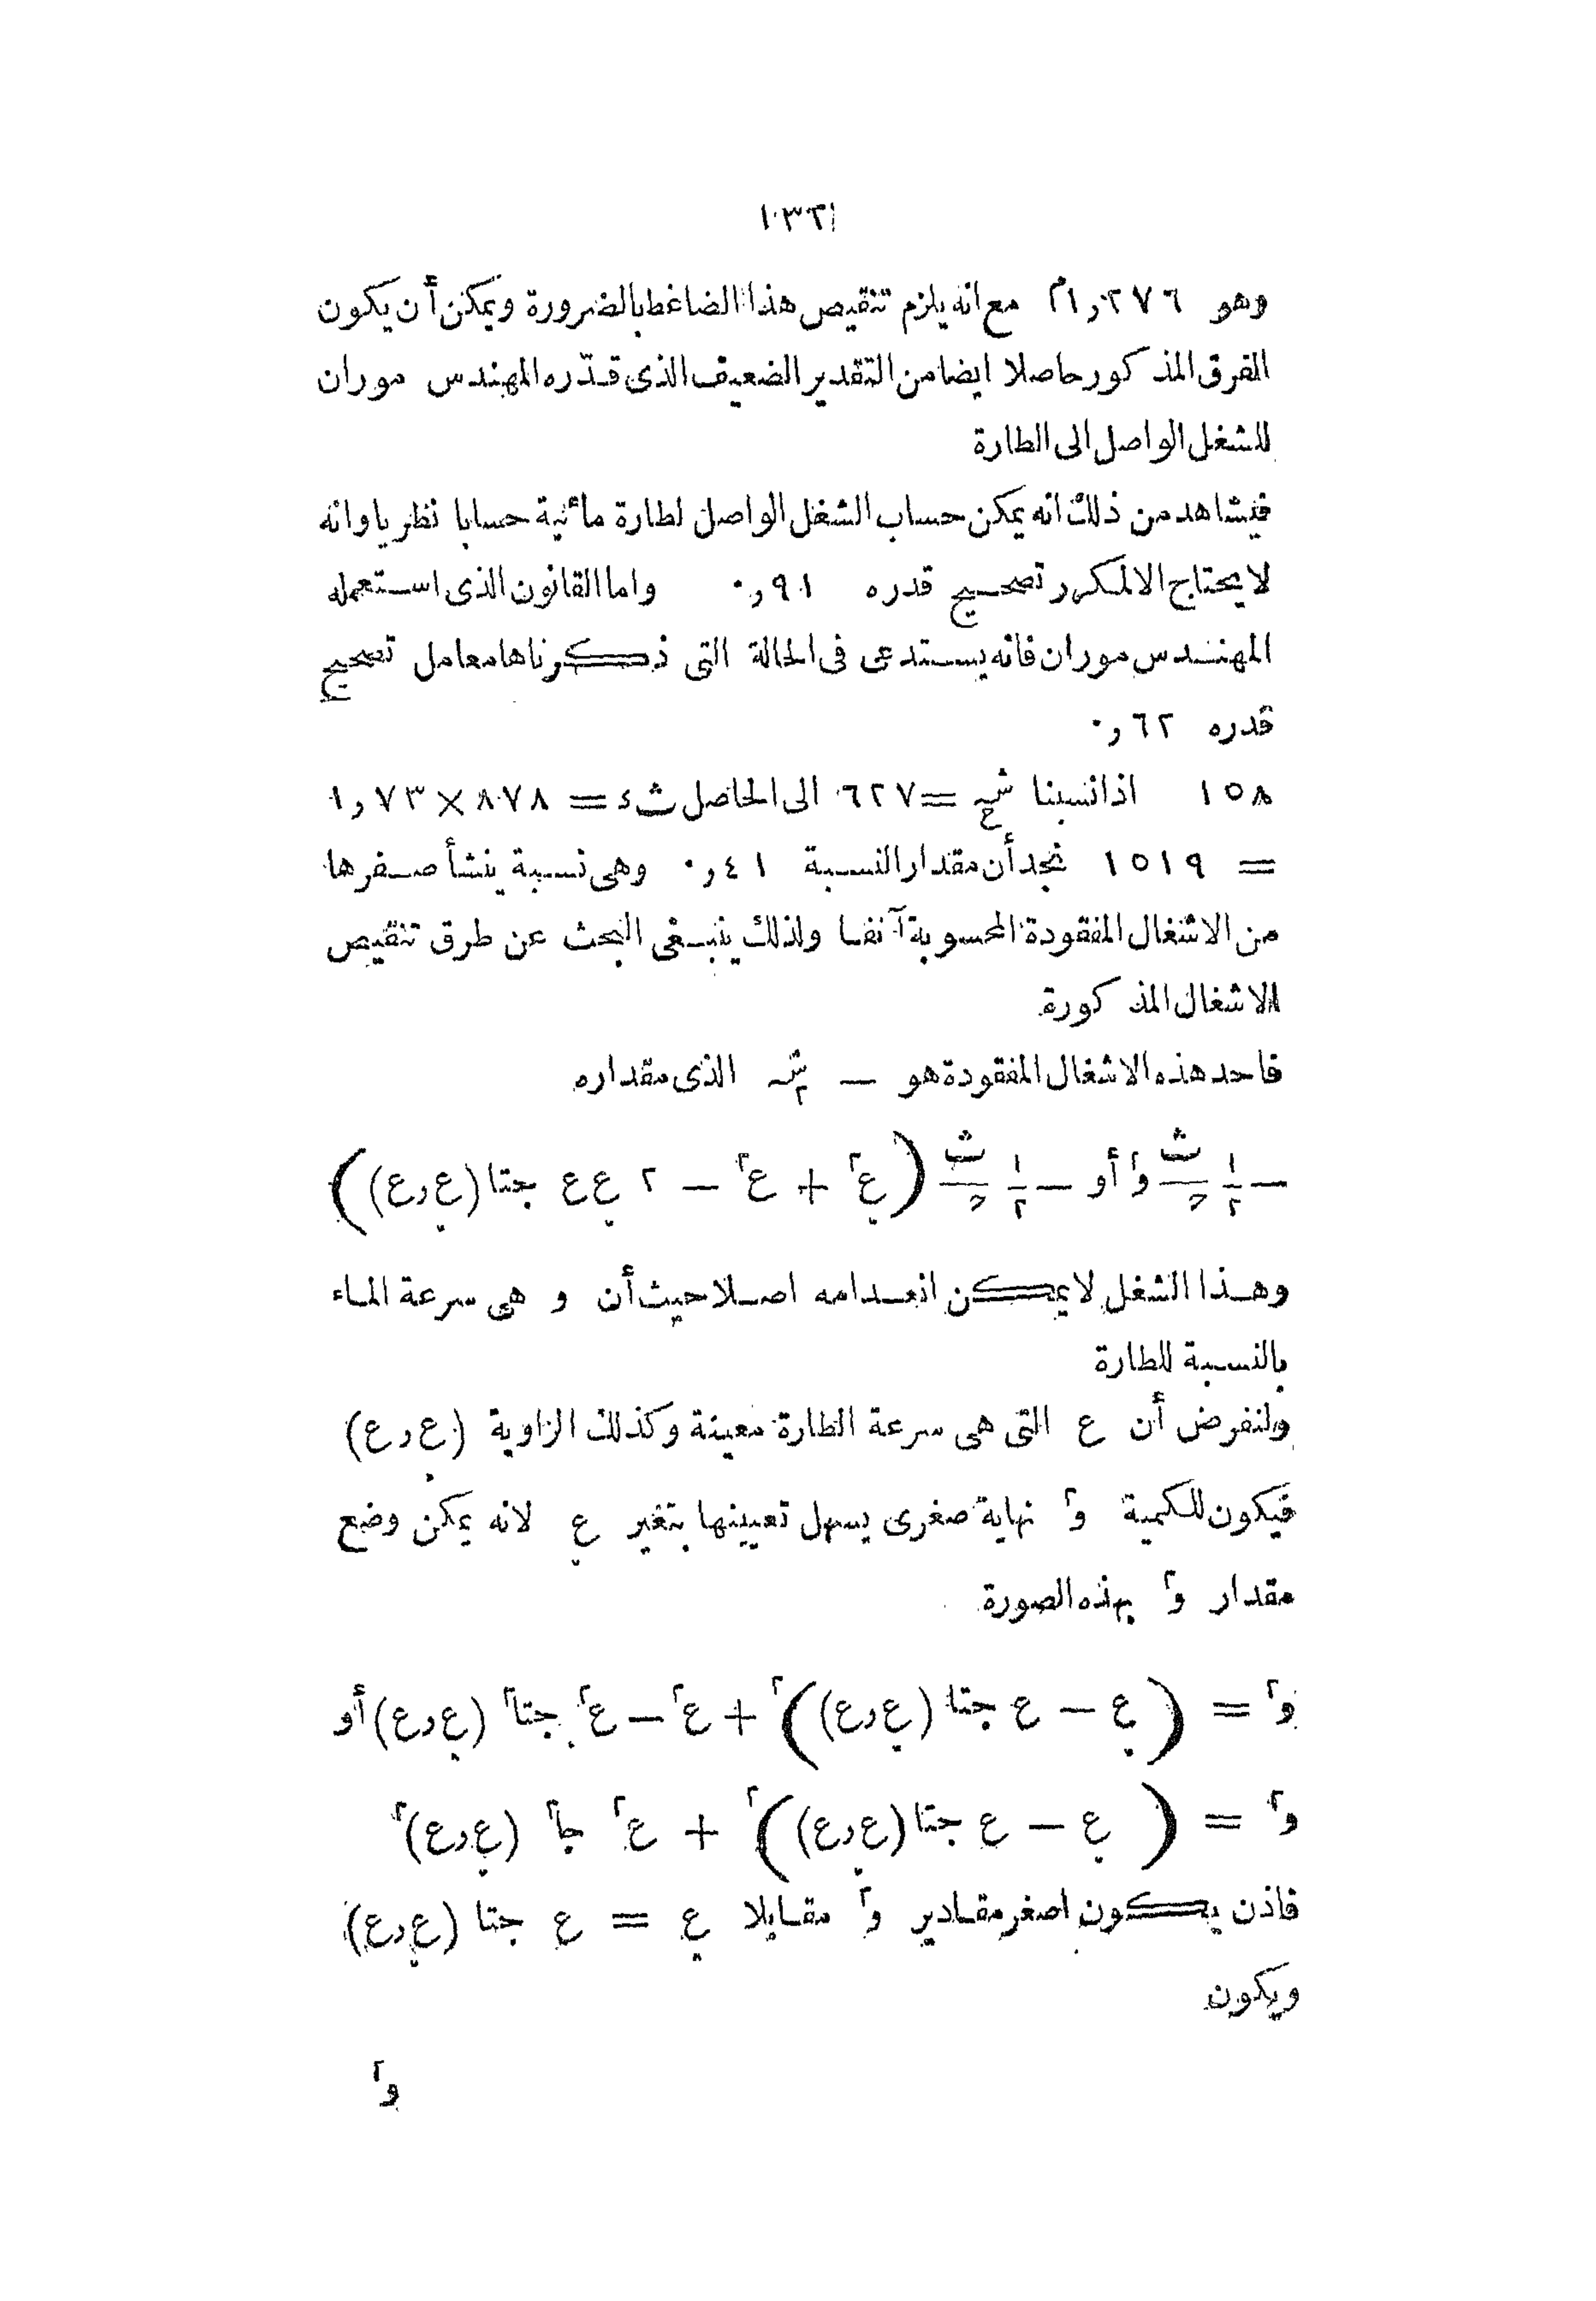 ١٣٢
وهو ١٫٢٧٦م مع انه يلزم تنقيص هذا الضاغط بالضرورة ويمكن أن يكون
الفرق المذكور حاصلا ايضا من التقدير الضعيف الذى قدّره المهندس موران
للشغل الواصل الى الطارة
فيشاهد من ذلك انه يمكن حساب الشغل الواصل لطارة مائية حسابا نظريا وانه
لا يحتاج الا لمكرر تصحيح قدره ٠٫٩١ واما القانون الذى استعمله
المهندس موران فانه يستدعى فى الحالة التى ذكرناها معامل تصحيح
قدره ٠٫٦٢
١٥٨ اذا نسبنا شہ ح = ٦٢٧ الى الحاصل ثء = ٨٧٨ × ١٫٧٣
= ١٥١٩ نجد أن مقدار النسبة ٠٫٤١ وهى نسبة ينشأ صغرها
من الاشغال المفقودة المحسوبة آنفا ولذلك ينبغى البحث عن طرق تنقيص
الاشغال المذكورة
فاحد هذه الاشغال المفقودة هو — شہ٢ الذى مقداره
— ١/٢ ث/ح و٢ أو — ١/٢ ث/ح (ع̣٢ + ع٢ — ٢ ع̣ ع جتا (ع̣ر ع))
وهذا الشغل لا يمكن انعدامه اصلا حيث أن و هى سرعة الماء
بالنسبة للطارة
ولنفرض أن ع التى هى سرعة الطارة معينة وكذلك الزاوية (ع̣ر ع)
فيكون للكمية و٢ نهاية صغرى يسهل تعيينها بتغير ع̣ لانه يمكن وضع
مقدار و٢ بهذه الصورة
و٢ = (ع̣ — ع جتا (ع̣ر ع))٢ + ع٢ — ع٢ جتا٢ (ع̣ر ع) أو
و٢ = (ع̣ — ع جتا (ع̣ر ع))٢ + ع٢ جا٢ (ع̣ر ع)٢
فاذن يكون اصغر مقادير و٢ مقابلا ع̣ = ع جتا (ع̣ر ع)
ويكون
و٢